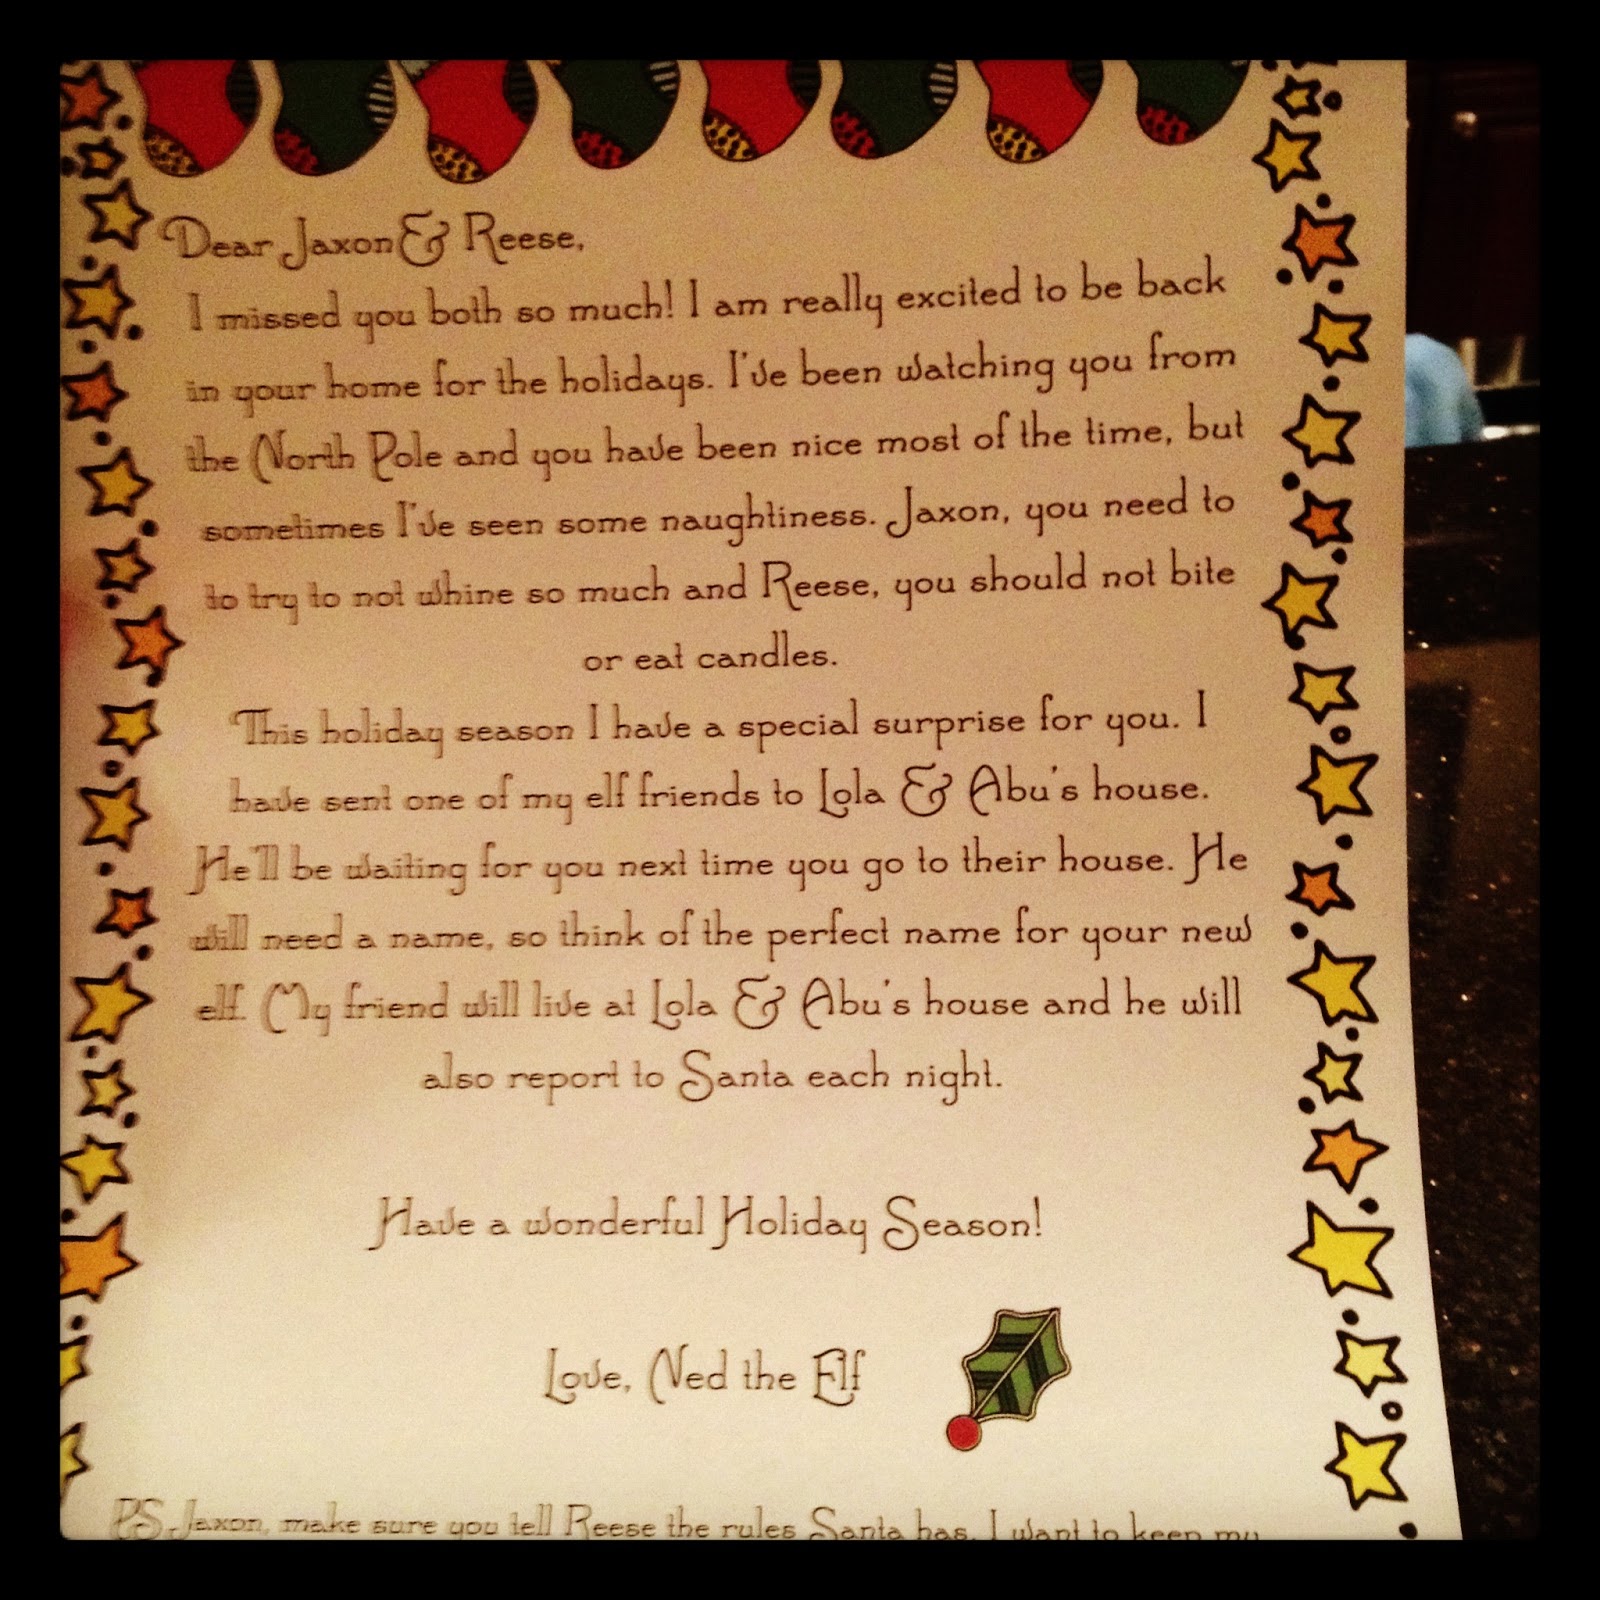 Dear Jaxon & Reese,
I missed you both so much! I am really excited to be back
in your home for the holidays. I've been watching you from
the North Pole and you have been nice most of the time, but
sometimes I've seen some naughtiness. Jaxon, you need to
to try to not whine so much and Reese, you should not bite
or eat candles.
This holiday season I have a special surprise for you. I
have sent one of my elf friends to Lola & Abu's house.
He'll be waiting for you next time you go to their house. He
will need a name, so think of the perfect name for your new
elf. My friend will live at Lola & Abu's house and he will
also report to Santa each night.
Have a wonderful Holiday Season!
Love, Ned the Elf
PS Jaxon, make sure you tell Reese the rules Santa has. I want to keep my